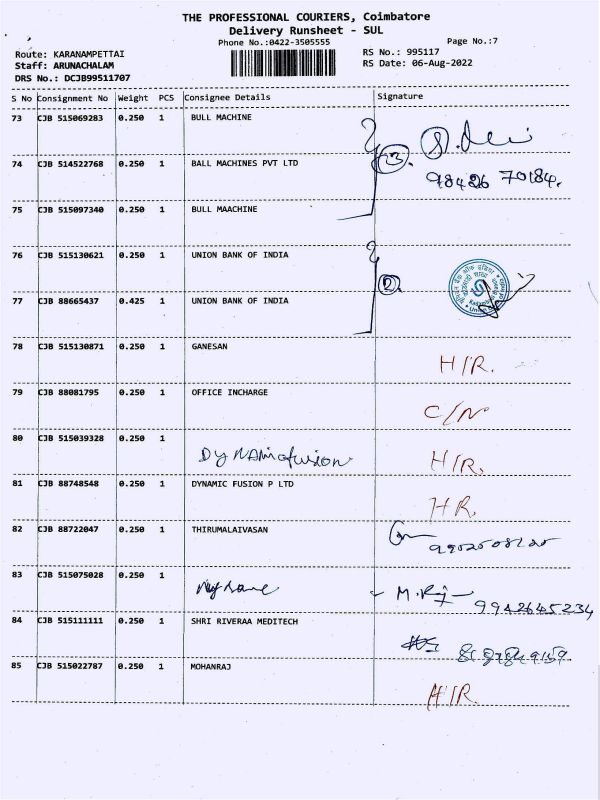 THE PROFESSIONAL COURIERS, Coimbatore
Delivery Runsheet - SUL
Phone No.:0422-3505555
Page No.:7
Route: KARANAMPETTAI
RS No.: 995117
Staff: ARUNACHALAM
RS Date: 06-Aug-2022
DRS No.: DCJB99511707
S No Consignment No Weight PCS Consignee Details Signature
73 CJB 515069283 0.250 1 BULL MACHINE
74 CJB 514522768 0.250 1 BALL MACHINES PVT LTD 3
98426 70184.
75 CJB 515097340 0.250 1 BULL MAACHINE
76 CJB 515130621 0.250 1 UNION BANK OF INDIA
2
77 CJB 88665437 0.425 1 UNION BANK OF INDIA
78 CJB 515130871 0.250 1 GANESAN
H/R.
79 CJB 88081795 0.250 1 OFFICE INCHARGE
C/N
80 CJB 515039328 0.250 1
DYNAMicfusion H/R.
81 CJB 88748548 0.250 1 DYNAMIC FUSION P LTD
HR.
82 CJB 88722047 0.250 1 THIRUMALAIVASAN
83 CJB 515075028 0.250 1
9942645234
84 CJB 515111111 0.250 1 SHRI RIVERAA MEDITECH
85 CJB 515022787 0.250 1 MOHANRAJ
H/R.